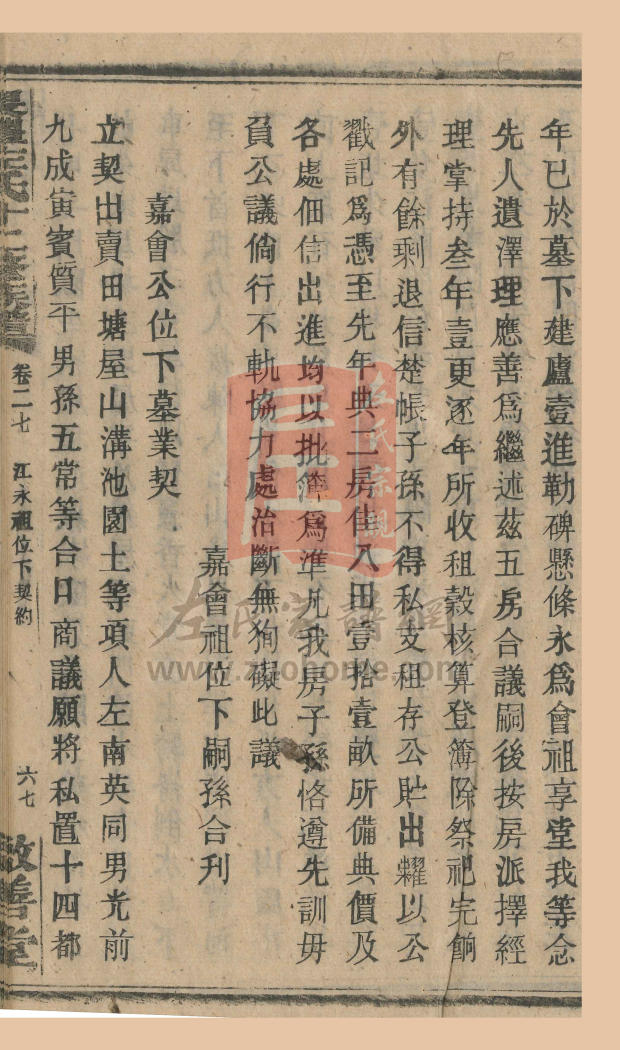 年已於墓下建廬壹進勒碑懸條永爲會祖享堂我等念
先人遺澤理應善爲繼述茲五房合議嗣後按房派擇經
理掌持叁年壹更逐年所收租穀核算登簿除祭祀完餉
外有餘剩退信楚帳子孫不得私支租存公貯出糶以公
戳記爲憑至先年典二房佳八田壹拾壹畝所備典價及
各處佃信出進均以批簿爲準凡我房子孫恪遵先訓毋
負公議倘行不軌協力處治斷無狥礙此議
嘉會祖位下嗣孫合刋
嘉會公位下墓業契
立契出賣田塘屋山溝池園土等項人左南英同男光前
九成寅賓質平男孫五常等合日商議願將私置十四都
左氏十二修族譜
卷二七
江永祖位下契約
六七
敬善堂
左氏宗親
左氏家譜網
www.zuohome.com